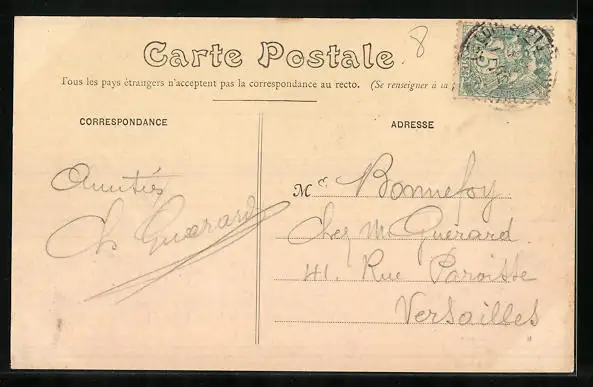 8
Carte Postale
Tous les pays étrangers n'acceptent pas la correspondance au recto. (Se renseigner à la
CORRESPONDANCE
ADRESSE
Amitiés
Ch Guerard
M Bonnefoy
Chez M Guerard
41. Rue Paroisse
Versailles